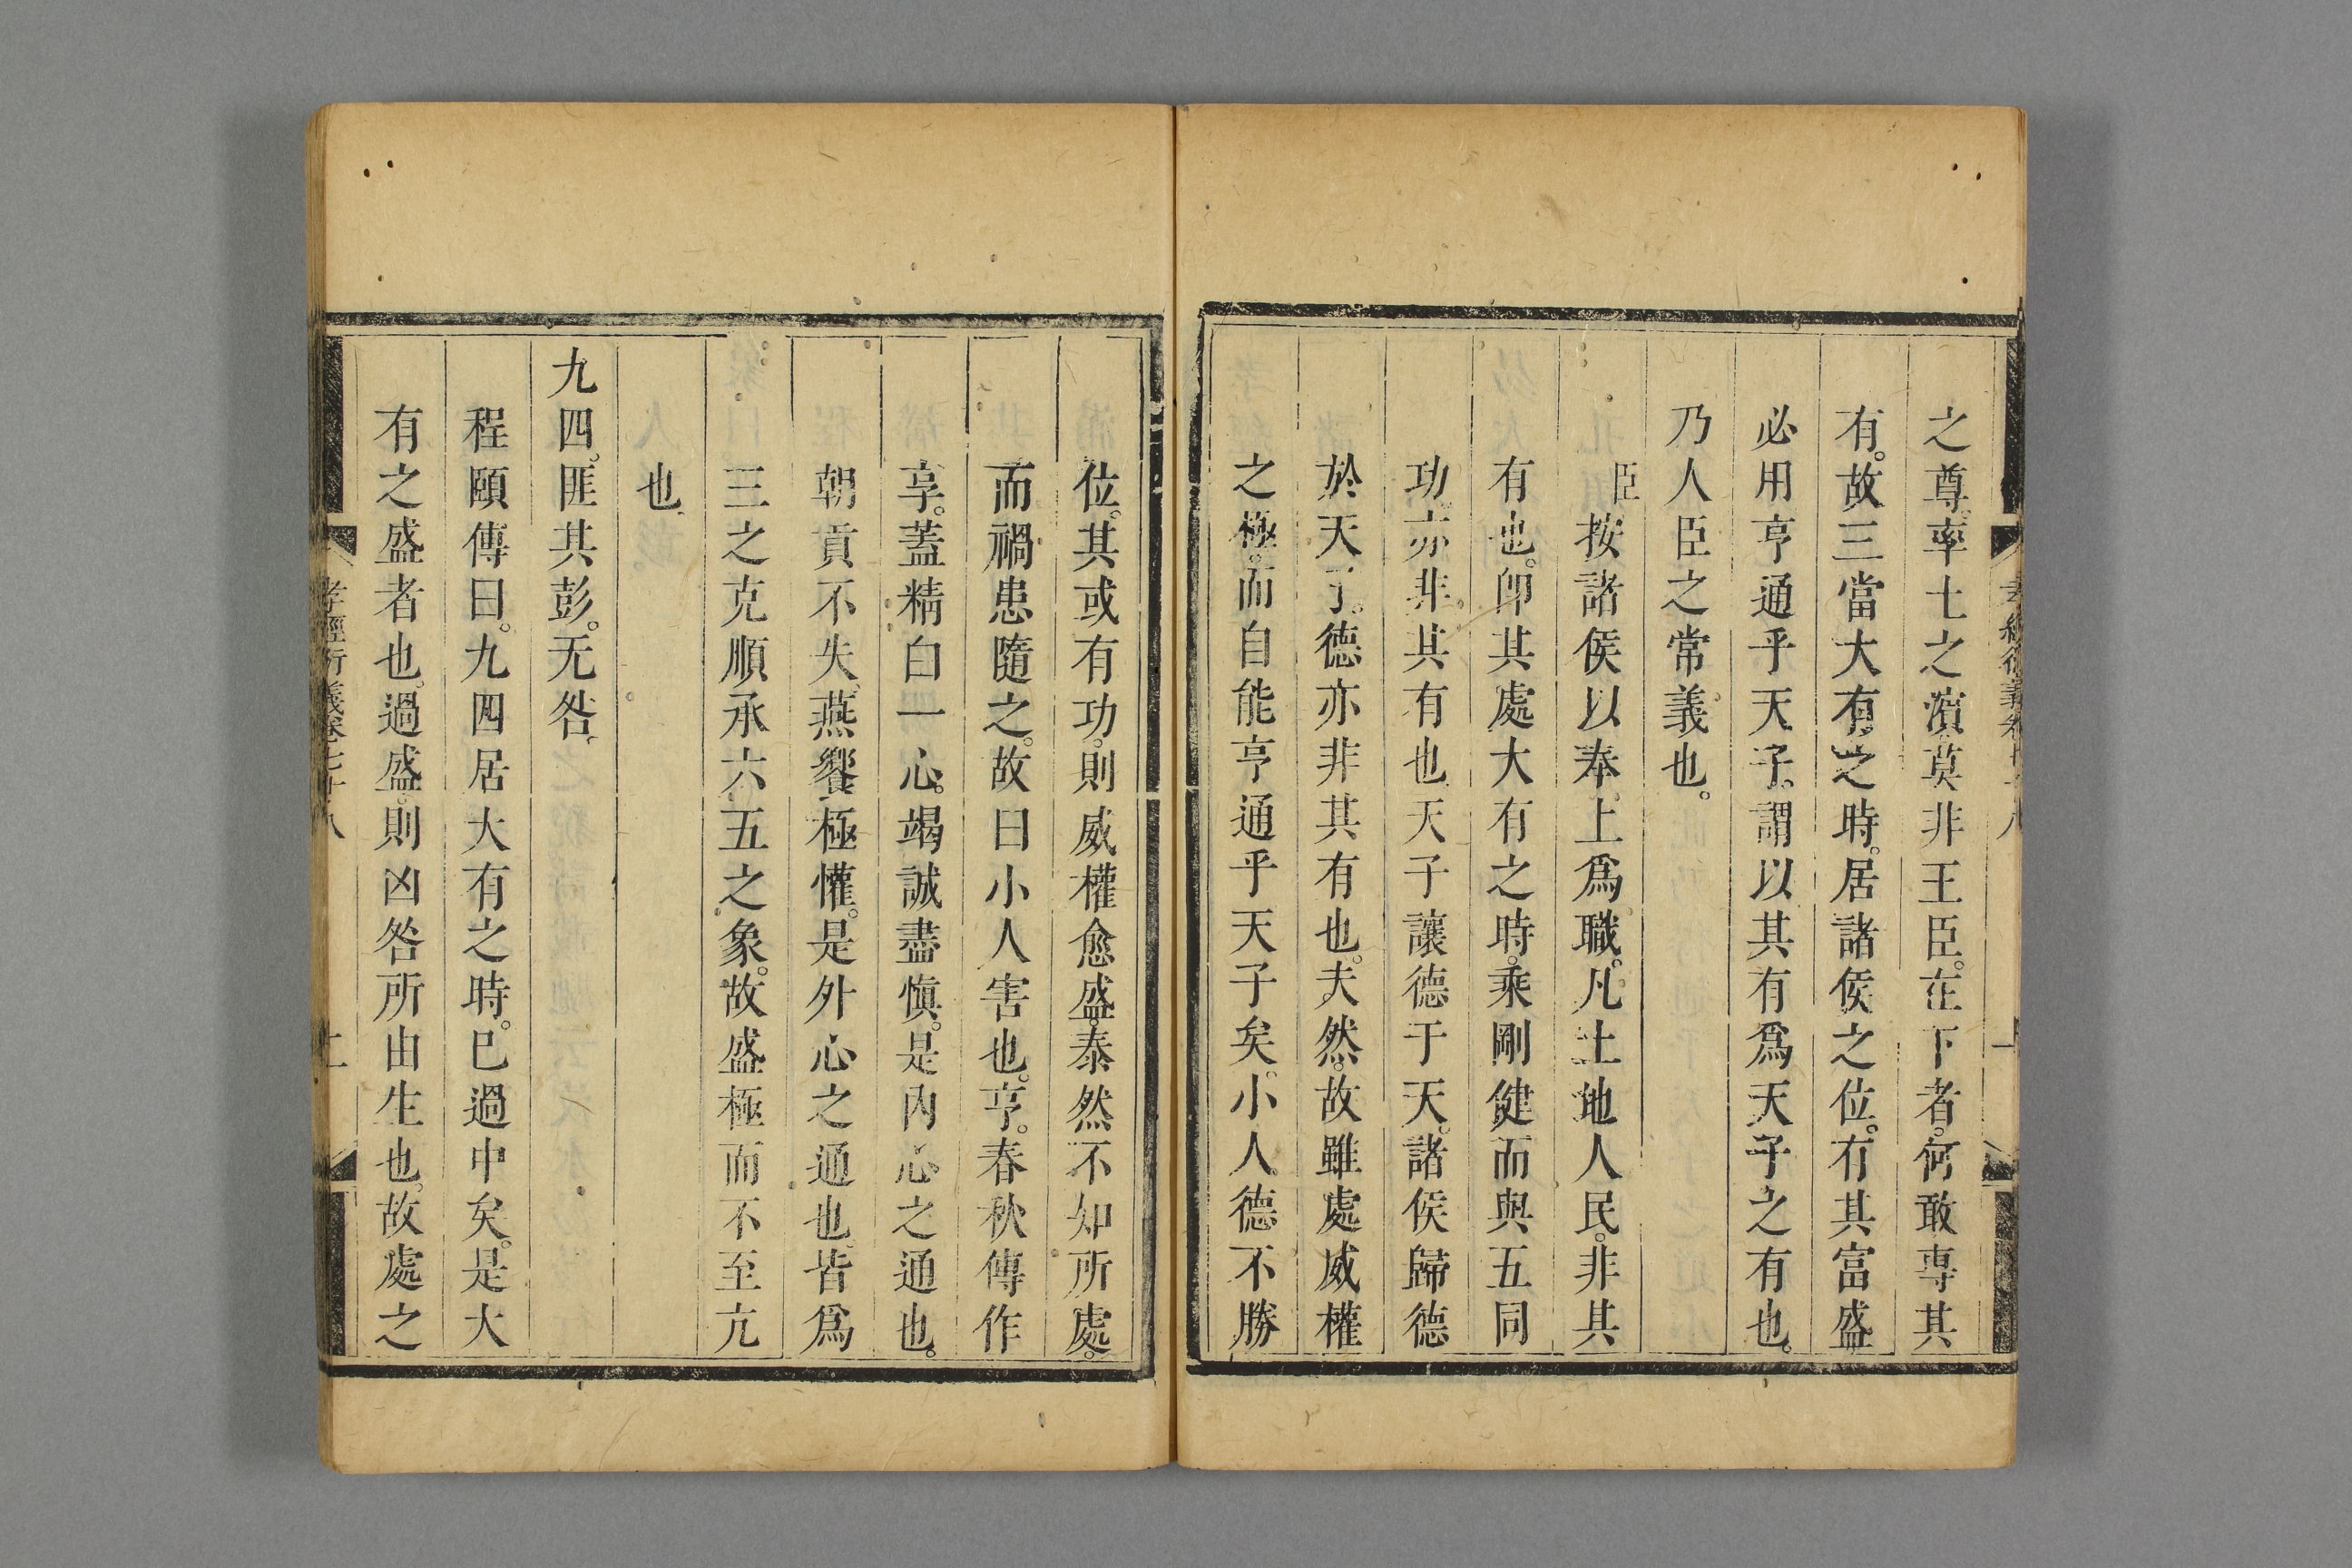 之尊。率土之濱莫非王臣。在下者。何敢專其
有。故三當大有之時。居諸侯之位。有其富盛
必用亨通乎天子。謂以其有爲天子之有也。
乃人臣之常義也。
臣按諸侯以奉上爲職。凡土地人民。非其
有也。卽其處大有之時。乘剛健而與五同
功。亦非其有也天子讓德于天。諸侯歸德
於天子。德亦非其有也。夫然。故雖處威權
之極。而自能亨通乎天子矣。小人德不勝
位。其或有功。則威權愈盛。泰然不知所處。
而禍患隨之。故曰小人害也。亨。春秋傳作
享。蓋精白一心。竭誠盡愼。是內心之通也。
朝貢不失。燕饗極懽。是外心之通也。皆爲
三之克順承六五之象。故盛極而不至亢
也
九四。匪其彭。无咎
程頤傳曰。九四居大有之時。已過中矣。是大
有之盛者也。過盛。則凶咎所由生也。故處之
孝經衍義卷七十八
二